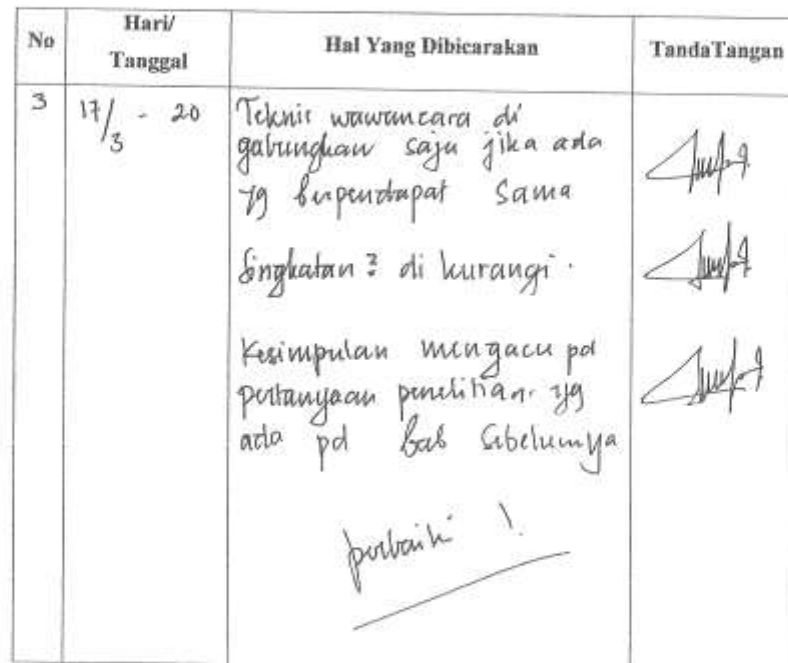 No
Hari/
Tanggal
Hal Yang Dibicarakan
TandaTangan
3
17/3 - 20
Teknik wawancara di
gabungkan saja jika ada
yg berpendapat sama
Singkatan² di kurangi.
Kesimpulan mengacu pd
pertanyaan penelitian yg
ada pd bab sebelumnya
perbaiki !